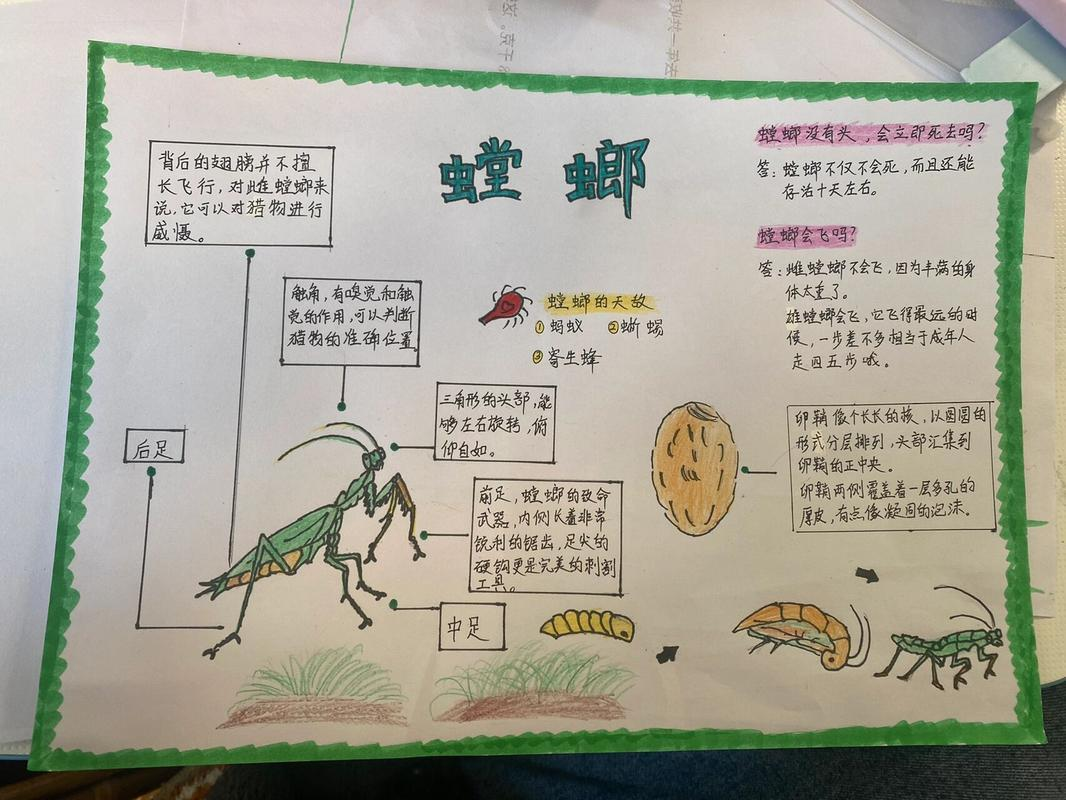 螳螂
背后的翅膀并不擅
长飞行，对此雌螳螂来
说，它可以对猎物进行
威慑。
触角，有嗅觉和触
觉的作用，可以判断
猎物的准确位置
三角形的头部，能
够左右旋转，俯
仰自如。
后足
前足，螳螂的致命
武器，内侧长着非常
锐利的锯齿，足尖的
硬钩更是完美的刺割
工具。
中足
螳螂的天敌
①蚂蚁 ②蜥蜴
③寄生蜂
螳螂没有头，会立即死去吗？
答：螳螂不仅不会死，而且还能
存活十天左右。
螳螂会飞吗？
答：雌螳螂不会飞，因为丰满的身
体太重了。
雄螳螂会飞，它飞得最远的时
候，一步差不多相当于成年人
走四五步哦。
卵鞘像个长长的核，以圆圆的
形式分层排列，头部汇集到
卵鞘的正中央。
卵鞘两侧覆盖着一层多孔的
厚皮，有点像凝固的泡沫。